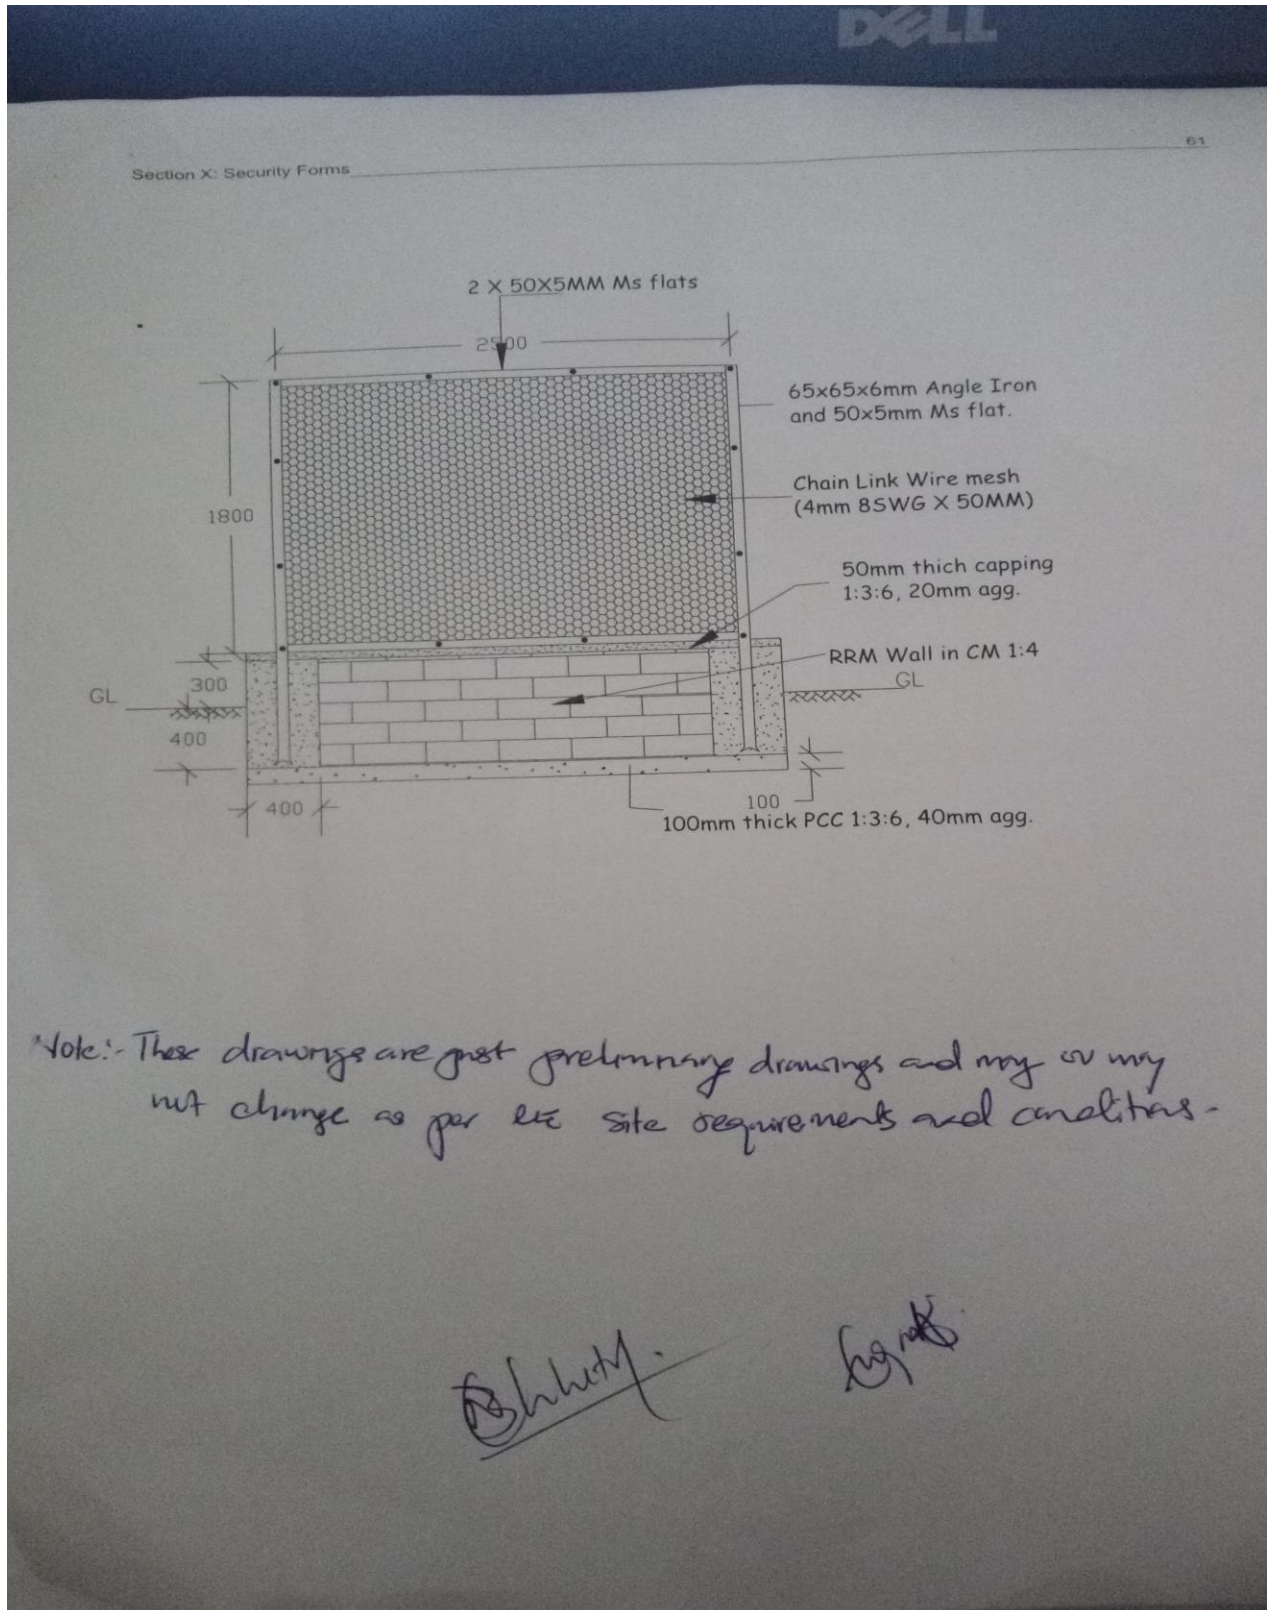 DELL
61
Section X: Security Forms
2 X 50X5MM Ms flats
2500
65x65x6mm Angle Iron
and 50x5mm Ms flat.
Chain Link Wire mesh
(4mm 8SWG X 50MM)
1800
50mm thich capping
1:3:6, 20mm agg.
RRM Wall in CM 1:4
GL
300
GL
400
400
100
100mm thick PCC 1:3:6, 40mm agg.
Note:- These drawings are just preliminary drawings and may or may
not change as per the site requirements and conditions.